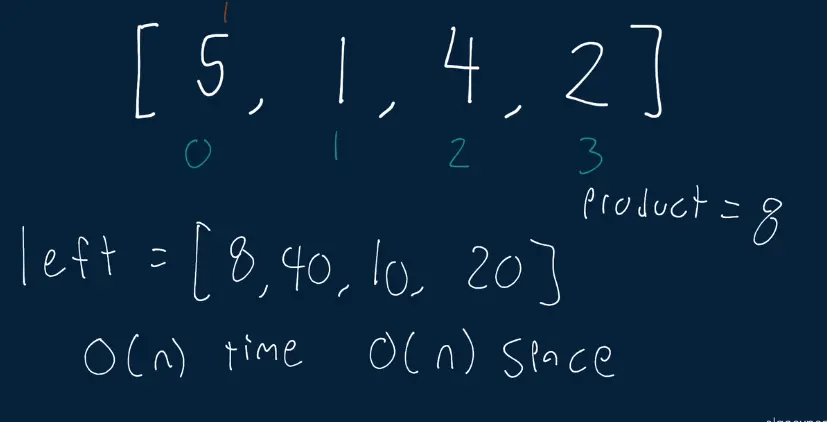 1
[ 5, 1, 4, 2 ]
0 1 2 3
product = 8
left = [ 8, 40, 10, 20 ]
O(n) time O(n) space